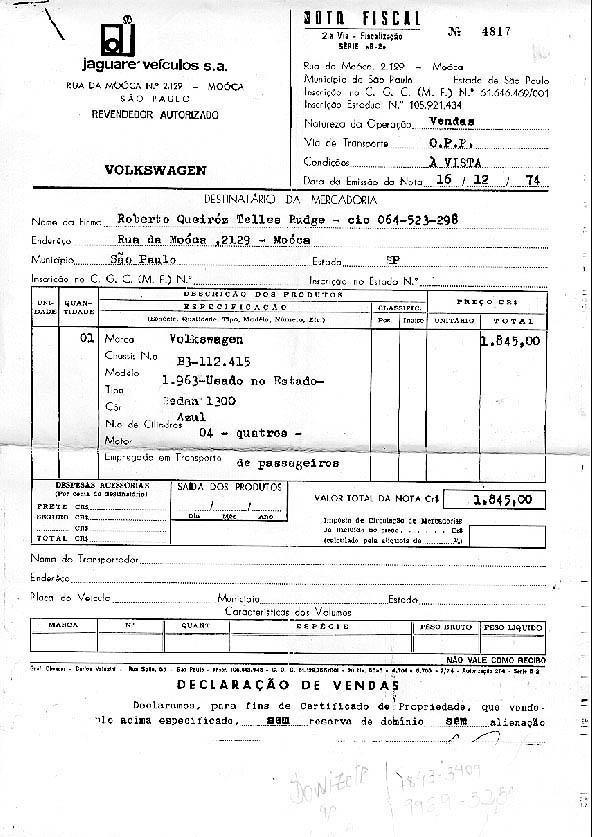 jaguaré veículos s.a.
RUA DA MOÓCA N.º 2.129 — MOÓCA
SÃO PAULO
REVENDEDOR AUTORIZADO
VOLKSWAGEN
NOTA FISCAL
2.a Via - Fiscalização
SÉRIE «B-2»
Nº 4817
Rua da Moóca, 2.129 — Moóca
Município de São Paulo Estado de São Paulo
Inscrição no C. G. C. (M. F.) N.º 61.646.469/001
Inscrição Estadual N.º 105.921.434
Natureza da Operação Vendas
Via de Transporte O.P.P.
Condições À VISTA
Data da Emissão da Nota 16 / 12 / 74
DESTINATÁRIO DA MERCADORIA
Nome da Firma Roberto Queiróz Telles Rudge - cic 064-523-298
Enderêço Rua da Moóca ,2129 - Moóca
Município São Paulo Estado SP
Inscrição no C. G. C. (M. F.) N.º Inscrição no Estado N.º
UNI-DADE QUAN-TIDADE DESCRIÇÃO DOS PRODUTOS PREÇO CR$
ESPECIFICAÇÃO CLASSIFIC.
(Espécie, Qualidade, Tipo, Modêlo, Número, Etc.) Pos. Inciso UNITÁRIO TOTAL
01 Marca Volkswagen 1.845,00
Chassis N.o B3-112.415
Modêlo 1.963-Usado no Estado-
Tipo Sedan 1300
Côr Azul
N.o de Cilindros 04 - quatros -
Motor
Empregado em Transporte de passageiros
DESPESAS ACESSÓRIAS
(Por conta do destinatário)
FRETE CR$
SEGURO CR$
CR$
TOTAL CR$
SAÍDA DOS PRODUTOS
/ /
Dia Mês Ano
VALOR TOTAL DA NOTA Cr$ 1.845,00
Imposto de Circulação de Mercadorias
Já incluído no preço Cr$
(calculado pela alíquota de %)
Nome do Transportador
Enderêço
Placa do Veículo Município Estado
Características dos Volumes
MARCA N.º QUANT. ESPÉCIE PÊSO BRUTO PÊSO LÍQUIDO
NÃO VALE COMO RECIBO
DECLARAÇÃO DE VENDAS
Declaramos, para fins de Certificado de Propriedade, que vende-
mos acima especificado, sem reserva de domínio sem alienação